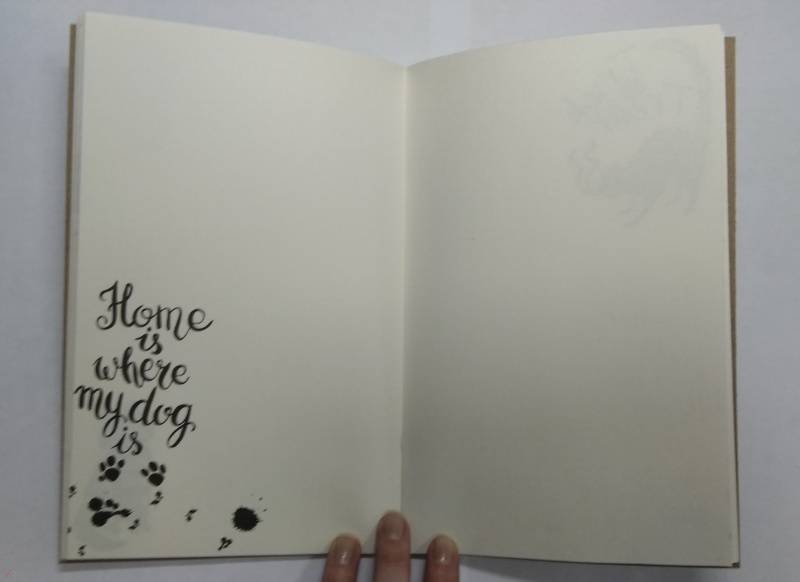 Home
is
where
my dog
is